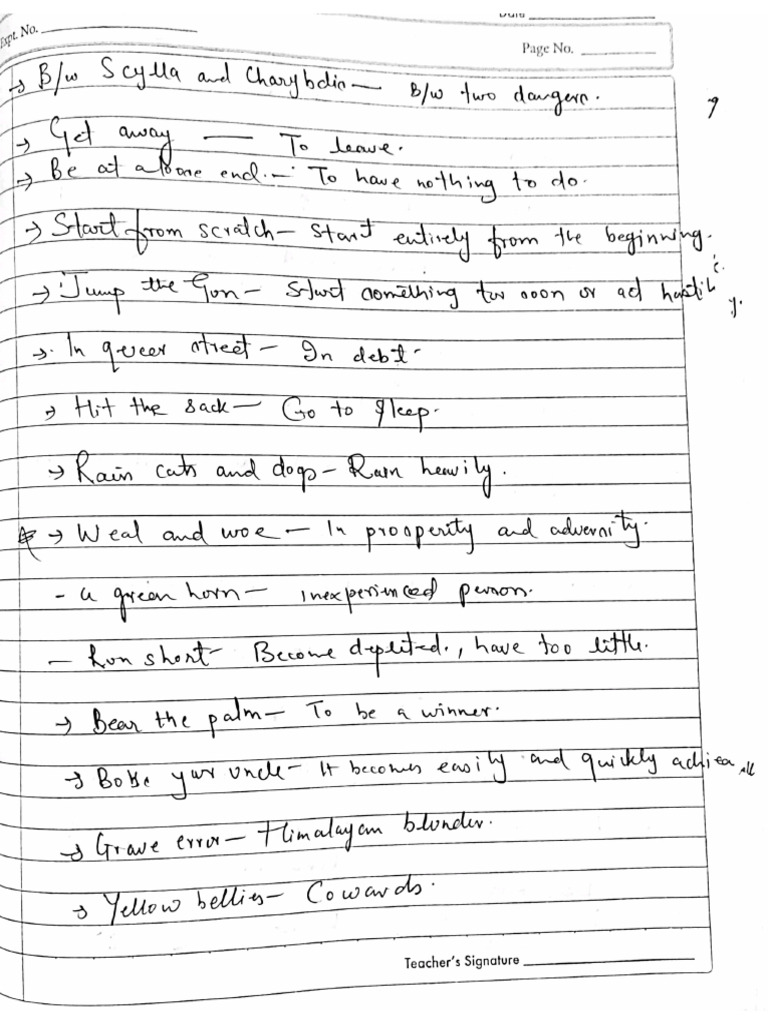 Date
Expt. No.
Page No.
→ B/w Scylla and Charybdis — B/w two dangers.
→ Get away — To leave.
→ Be at a loose end. — To have nothing to do.
→ Start from scratch — Start entirely from the beginning.
→ Jump the Gun — Start something too soon or act hastily.
→ In queer street — In debt.
→ Hit the sack — Go to sleep.
→ Rain cats and dogs — Rain heavily.
→ Weal and woe — In prosperity and adversity.
- a green horn — inexperienced person.
- Run short — Become depleted., have too little.
→ Bear the palm — To be a winner.
→ your uncle — It becomes easily and quickly
→ Grave error — Himalayan blunder.
→ Yellow bellies — Cowards.
Teacher's Signature